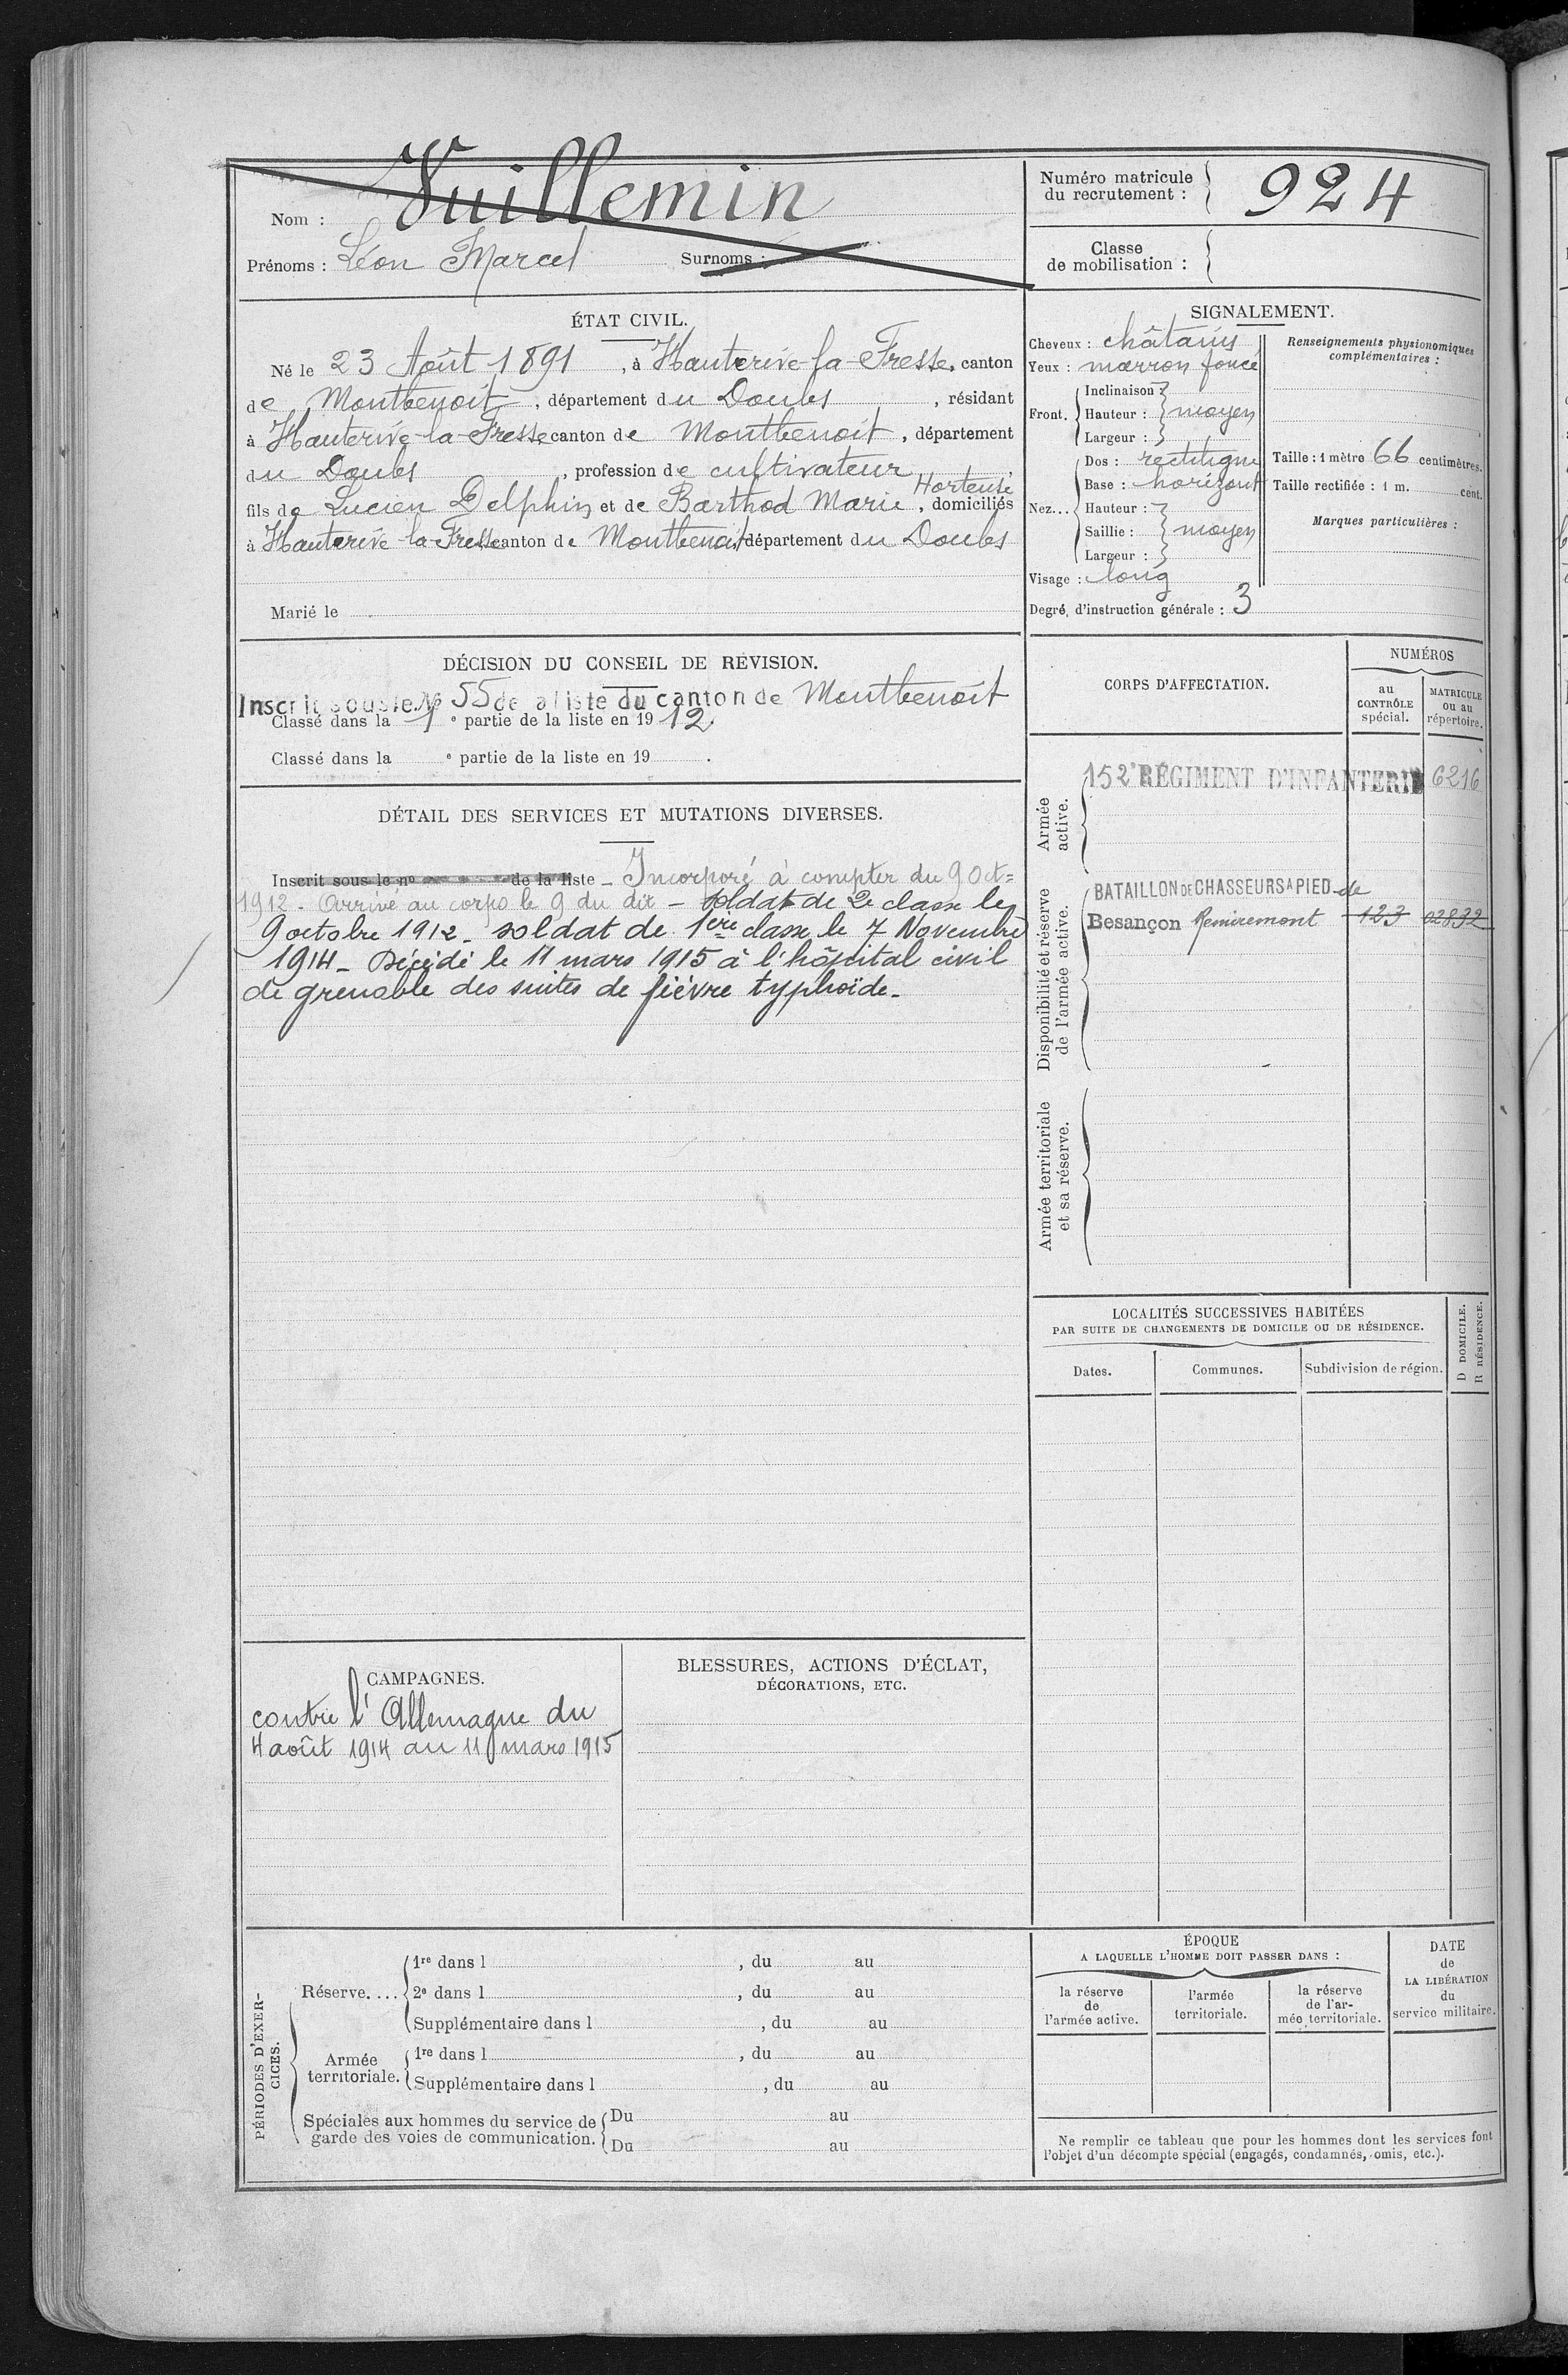 Nom : Vuillemin
Prénoms : Léon Marcel Surnoms :
Numéro matricule
du recrutement : 924
Classe
de mobilisation :
ÉTAT CIVIL.
Né le 23 Août 1891, à Hauterive-la-Fresse, canton
de Montbenoit, département du Doubs, résidant
à Hauterive-la-Fresse canton de Montbenoit, département
du Doubs, profession de cultivateur
Hortense
fils de Lucien Delphin et de Barthod Marie, domiciliés
à Hauterive-la-Fresse canton de Montbenoit département du Doubs
Marié le
SIGNALEMENT.
Cheveux : châtains
Yeux : marron foncé
Front. Inclinaison
Hauteur : moyen
Largeur :
Nez... Dos : rectiligne
Base : horizont
Hauteur :
Saillie : moyen
Largeur :
Visage : long
Degré d'instruction générale : 3
Renseignements physionomiques
complémentaires :
Taille : 1 mètre 66 centimètres.
Taille rectifiée : 1 m. cent.
Marques particulières :
DÉCISION DU CONSEIL DE REVISION.
Inscrit sous le No 55 de a liste du canton de Montbenoit
Classé dans la 1e partie de la liste en 1912.
Classé dans la e partie de la liste en 19 .
DÉTAIL DES SERVICES ET MUTATIONS DIVERSES.
Inscrit sous le no de la liste - Incorporé à compter du 9 Oct=
1912. Arrivé au corps le 9 du dit - soldat de 2e classe le
9 octobre 1912. soldat de 1ère classe le 7 Novembre
1914 - Décédé le 11 mars 1915 à l'hôpital civil
de grenoble des suites de fièvre typhoïde.
CORPS D'AFFECTATION.
NUMÉROS
au
CONTRÔLE
spécial.
MATRICULE
ou au
répertoire.
Armée
active.
152e RÉGIMENT D'INFANTERIE 6216
Disponibilité et réserve
de l'armée active.
BATAILLON DE CHASSEURS A PIED de
Besançon Remiremont 123 02832
Armée territoriale
et sa réserve.
LOCALITÉS SUCCESSIVES HABITÉES
PAR SUITE DE CHANGEMENTS DE DOMICILE OU DE RÉSIDENCE.
Dates.
Communes.
Subdivision de région.
D DOMICILE.
R RÉSIDENCE.
CAMPAGNES.
contre l'Allemagne du
4 août 1914 au 11 mars 1915
BLESSURES, ACTIONS D'ÉCLAT,
DÉCORATIONS, ETC.
PÉRIODES D'EXER-
CICES.
Réserve....
1re dans l , du au
2e dans l , du au
Supplémentaire dans l , du au
Armée
territoriale.
1re dans l , du au
Supplémentaire dans l , du au
Spéciales aux hommes du service de
garde des voies de communication.
Du au
Du au
ÉPOQUE
A LAQUELLE L'HOMME DOIT PASSER DANS :
la réserve
de
l'armée active.
l'armée
territoriale.
la réserve
de l'ar-
mée territoriale.
DATE
de
LA LIBÉRATION
du
service militaire.
Ne remplir ce tableau que pour les hommes dont les services font
l'objet d'un décompte spécial (engagés, condamnés, omis, etc.).